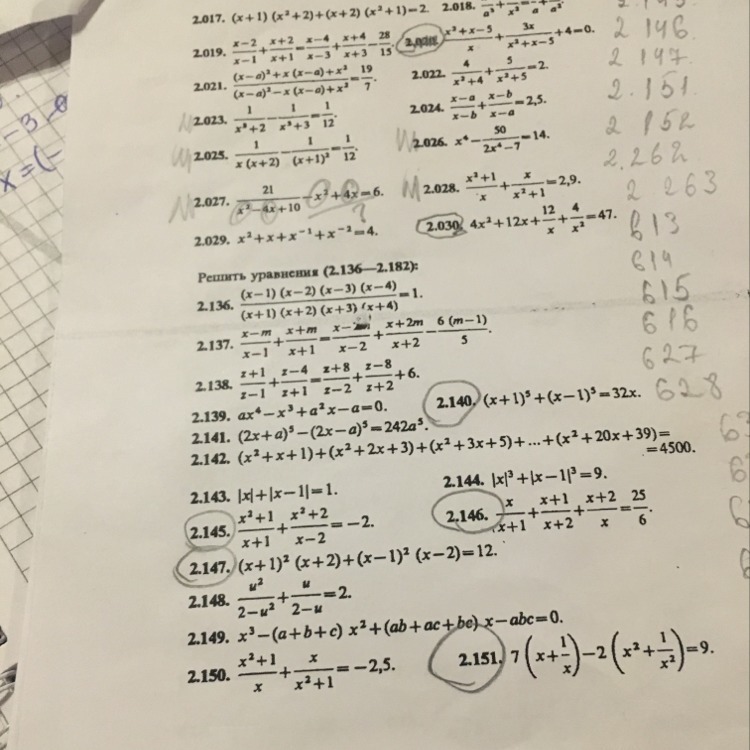 2.017. (x+1) (x²+2)+(x+2) (x²+1)=2. 2.018.
2.019. \frac{x-2}{x-1}+\frac{x+2}{x+1}=\frac{x-4}{x-3}+\frac{x+4}{x+3}-\frac{28}{15}. \frac{x²+x-5}{x}+\frac{3x}{x²+x-5}+4=0.
2.021. \frac{(x-a)²+x (x-a)+x²}{(x-a)²-x (x-a)+x²}=\frac{19}{7}. 2.022. \frac{4}{x²+4}+\frac{5}{x²+5}=2.
2.023. \frac{1}{x³+2}-\frac{1}{x³+3}=\frac{1}{12}. 2.024. \frac{x-a}{x-b}+\frac{x-b}{x-a}=2,5.
2.025. \frac{1}{x (x+2)}-\frac{1}{(x+1)²}=\frac{1}{12}. 2.026. x⁴-\frac{50}{2x⁴-7}=14.
2.027. \frac{21}{x²-4x+10}-x²+4x=6. 2.028. \frac{x²+1}{x}+\frac{x}{x²+1}=2,9.
?
2.029. x²+x+x⁻¹+x⁻²=4. 2.030. 4x²+12x+\frac{12}{x}+\frac{4}{x²}=47.
Решить уравнения (2.136—2.182):
2.136. \frac{(x-1) (x-2) (x-3) (x-4)}{(x+1) (x+2) (x+3) (x+4)}=1.
2.137. \frac{x-m}{x-1}+\frac{x+m}{x+1}=\frac{x-2m}{x-2}+\frac{x+2m}{x+2}-\frac{6 (m-1)}{5}.
2.138. \frac{z+1}{z-1}+\frac{z-4}{z+1}=\frac{z+8}{z-2}+\frac{z-8}{z+2}+6.
2.139. ax⁴-x³+a²x-a=0. 2.140. (x+1)⁵+(x-1)⁵=32x.
2.141. (2x+a)⁵-(2x-a)⁵=242a⁵.
2.142. (x²+x+1)+(x²+2x+3)+(x²+3x+5)+...+(x²+20x+39)=
=4500.
2.143. |x|+|x-1|=1. 2.144. |x|³+|x-1|³=9.
2.145. \frac{x²+1}{x+1}+\frac{x²+2}{x-2}=-2. 2.146. \frac{x}{x+1}+\frac{x+1}{x+2}+\frac{x+2}{x}=\frac{25}{6}.
2.147. (x+1)² (x+2)+(x-1)² (x-2)=12.
2.148. \frac{u²}{2-u²}+\frac{u}{2-u}=2.
2.149. x³-(a+b+c) x²+(ab+ac+bc) x-abc=0.
2.150. \frac{x²+1}{x}+\frac{x}{x²+1}=-2,5. 2.151. 7(x+\frac{1}{x})-2(x²+\frac{1}{x²})=9.
2 146.
2 147.
2.151.
2 152
2.262
2 263
613
614
615
616
627
628
-3
x=(-